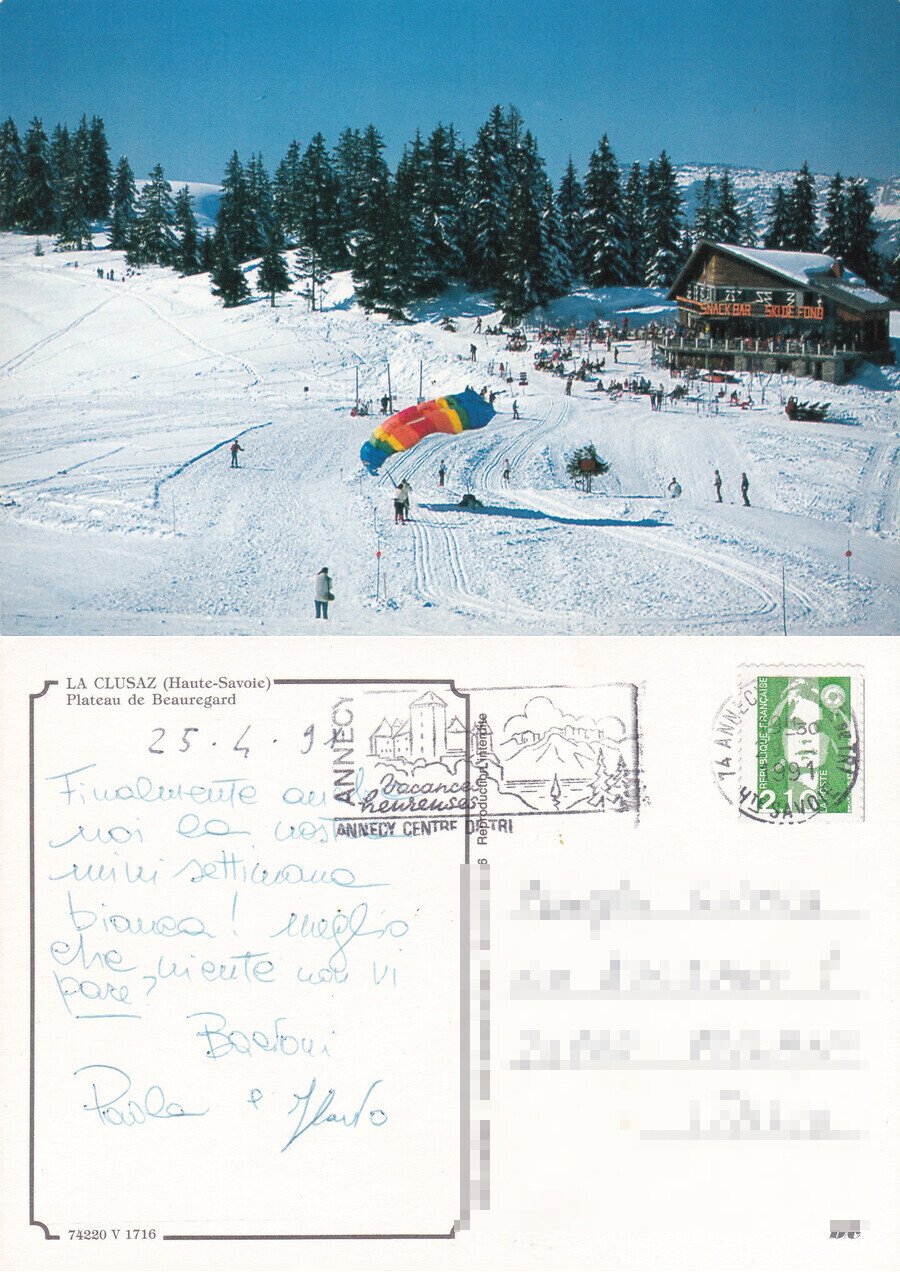 SNACK BAR SKI DE FOND
LA CLUSAZ (Haute-Savoie)
Plateau de Beauregard
25.4.91
Finalmente anche
noi la nostra
mini settimana
bianca! meglio
che niente non vi
pare?
Bacioni
Paola e
74220 V 1716
ANNECY
Vacances
heureuses
ANNECY CENTRE DE TRI
Reproduction interdite
74 ANNECY
1991
HTE SAVOIE
RÉPUBLIQUE FRANÇAISE
2,10
LA POSTE